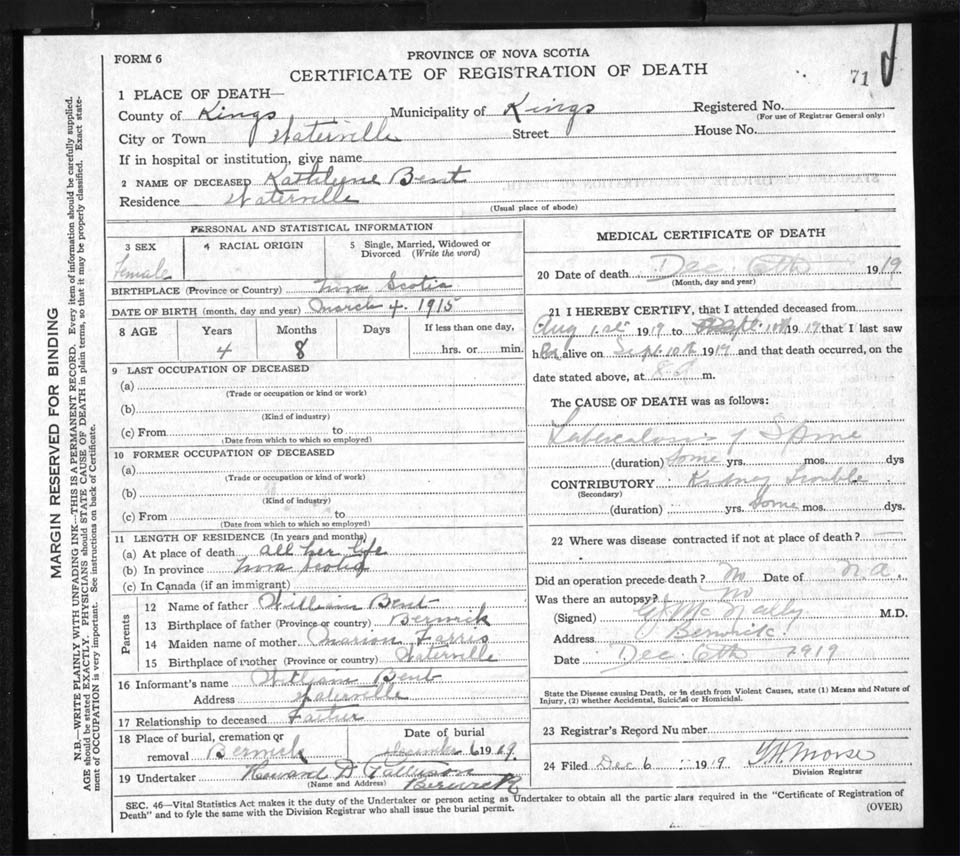 FORM 6
PROVINCE OF NOVA SCOTIA
CERTIFICATE OF REGISTRATION OF DEATH
71
1 PLACE OF DEATH—
County of Kings Municipality of Kings Registered No.
(For use of Registrar General only)
City or Town Waterville Street House No.
If in hospital or institution, give name
2 NAME OF DECEASED Kathlyne Bent
Residence Waterville
(Usual place of abode)
PERSONAL AND STATISTICAL INFORMATION
3 SEX 4 RACIAL ORIGIN 5 Single, Married, Widowed or Divorced (Write the word)
Female
BIRTHPLACE (Province or Country) Nova Scotia
DATE OF BIRTH (month, day and year) March 4. 1915
8 AGE Years Months Days If less than one day,
4 8 hrs. or min.
9 LAST OCCUPATION OF DECEASED
(a)
(Trade or occupation or kind or work)
(b)
(Kind of industry)
(c) From to
(Date from which to which so employed)
10 FORMER OCCUPATION OF DECEASED
(a)
(Trade or occupation or kind of work)
(b)
(Kind of industry)
(c) From to
(Date from which to which so employed)
11 LENGTH OF RESIDENCE (In years and months)
(a) At place of death all her life
(b) In province Nova Scotia
(c) In Canada (if an immigrant)
Parents
12 Name of father William Bent
13 Birthplace of father (Province or country) Berwick
14 Maiden name of mother Marion Farris
15 Birthplace of mother (Province or country) Waterville
16 Informant's name William Bent
Address Waterville
17 Relationship to deceased Father
18 Place of burial, cremation or removal Berwick
Date of burial December 6 1919.
19 Undertaker Howard D
(Name and Address) Berwick
MEDICAL CERTIFICATE OF DEATH
20 Date of death Dec 6th 1919
(Month, day and year)
21 I HEREBY CERTIFY, that I attended deceased from
Aug 1st 1919 to Sept. 10th 1919 that I last saw
her alive on Sept. 10th 1919 and that death occurred, on the
date stated above, at 8 m.
The CAUSE OF DEATH was as follows:
Tuberculosis of Spine
(duration) some yrs. mos. dys
CONTRIBUTORY Kidney Trouble
(Secondary)
(duration) yrs. some mos. dys.
22 Where was disease contracted if not at place of death?
Did an operation precede death? No Date of n.a.
Was there an autopsy? No
(Signed) McNally M.D.
Address Berwick.
Date Dec 6th 1919
State the Disease causing Death, or in death from Violent Causes, state (1) Means and Nature of
Injury, (2) whether Accidental, Suicidal or Homicidal.
23 Registrar's Record Number
24 Filed Dec 6 1919 Morse
Division Registrar
SEC. 46—Vital Statistics Act makes it the duty of the Undertaker or person acting as Undertaker to obtain all the particulars required in the "Certificate of Registration of
Death" and to fyle the same with the Division Registrar who shall issue the burial permit. (OVER)
MARGIN RESERVED FOR BINDING
N.B.—WRITE PLAINLY WITH UNFADING INK—THIS IS A PERMANENT RECORD. Every item of information should be carefully supplied.
AGE should be stated EXACTLY. PHYSICIANS should STATE CAUSE OF DEATH in plain terms, so that it may be properly classified. Exact state-
ment of OCCUPATION is very important. See instructions on back of Certificate.